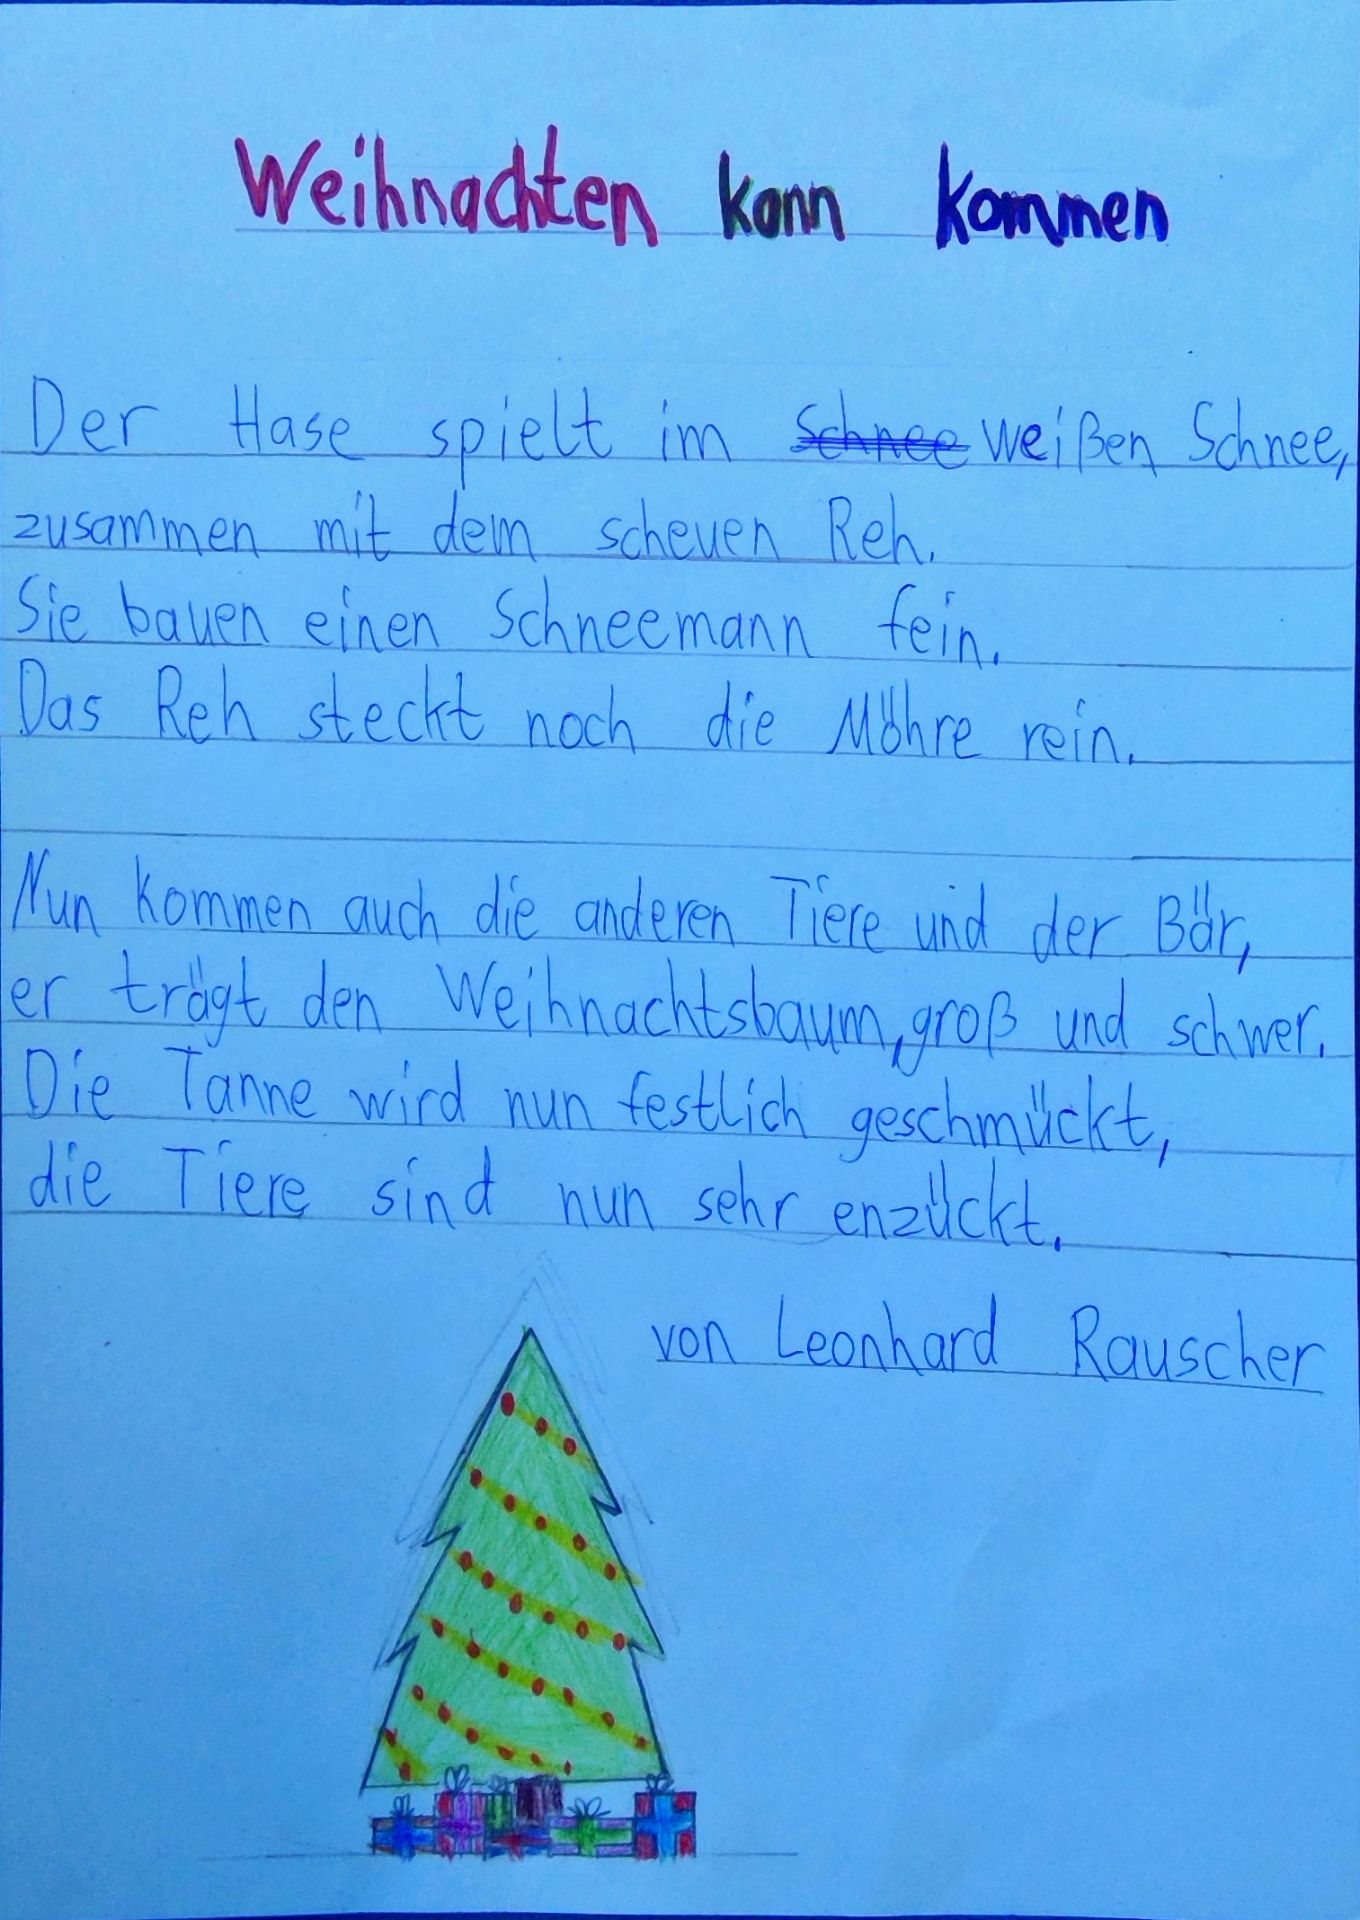 Weihnachten kann kommen
Der Hase spielt im Schnee weißen Schnee,
zusammen mit dem scheuen Reh.
Sie bauen einen Schneemann fein.
Das Reh steckt noch die Möhre rein.
Nun kommen auch die anderen Tiere und der Bär,
er trägt den Weihnachtsbaum, groß und schwer.
Die Tanne wird nun festlich geschmückt,
die Tiere sind nun sehr enzückt.
von Leonhard Rauscher